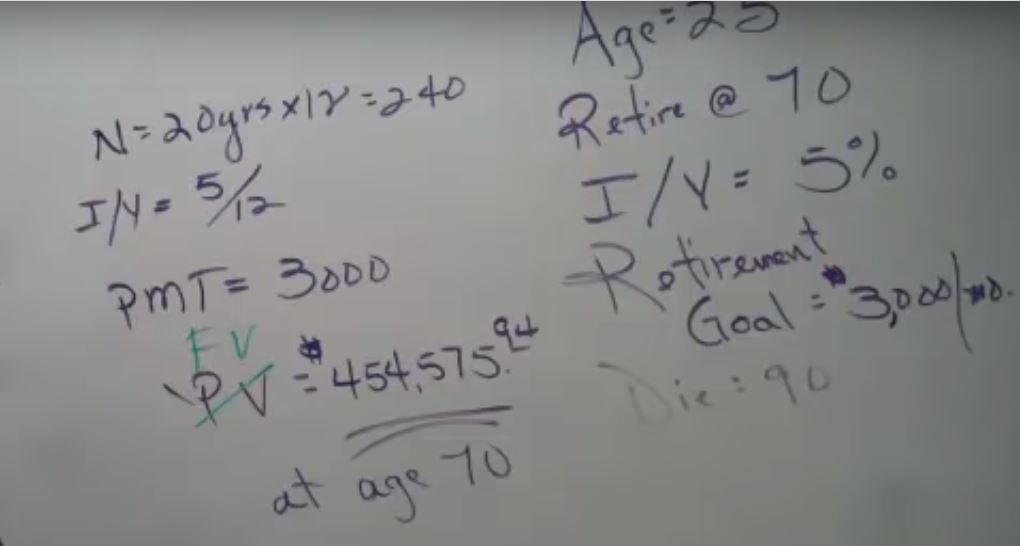 N=20yrs x12=240
I/Y= 5/12
PMT= 3000
FV
PV = $454,575.94
at age 70
Age=25
Retire @ 70
I/Y= 5%
Retirement
Goal = $3,000/mo.
Die: 90